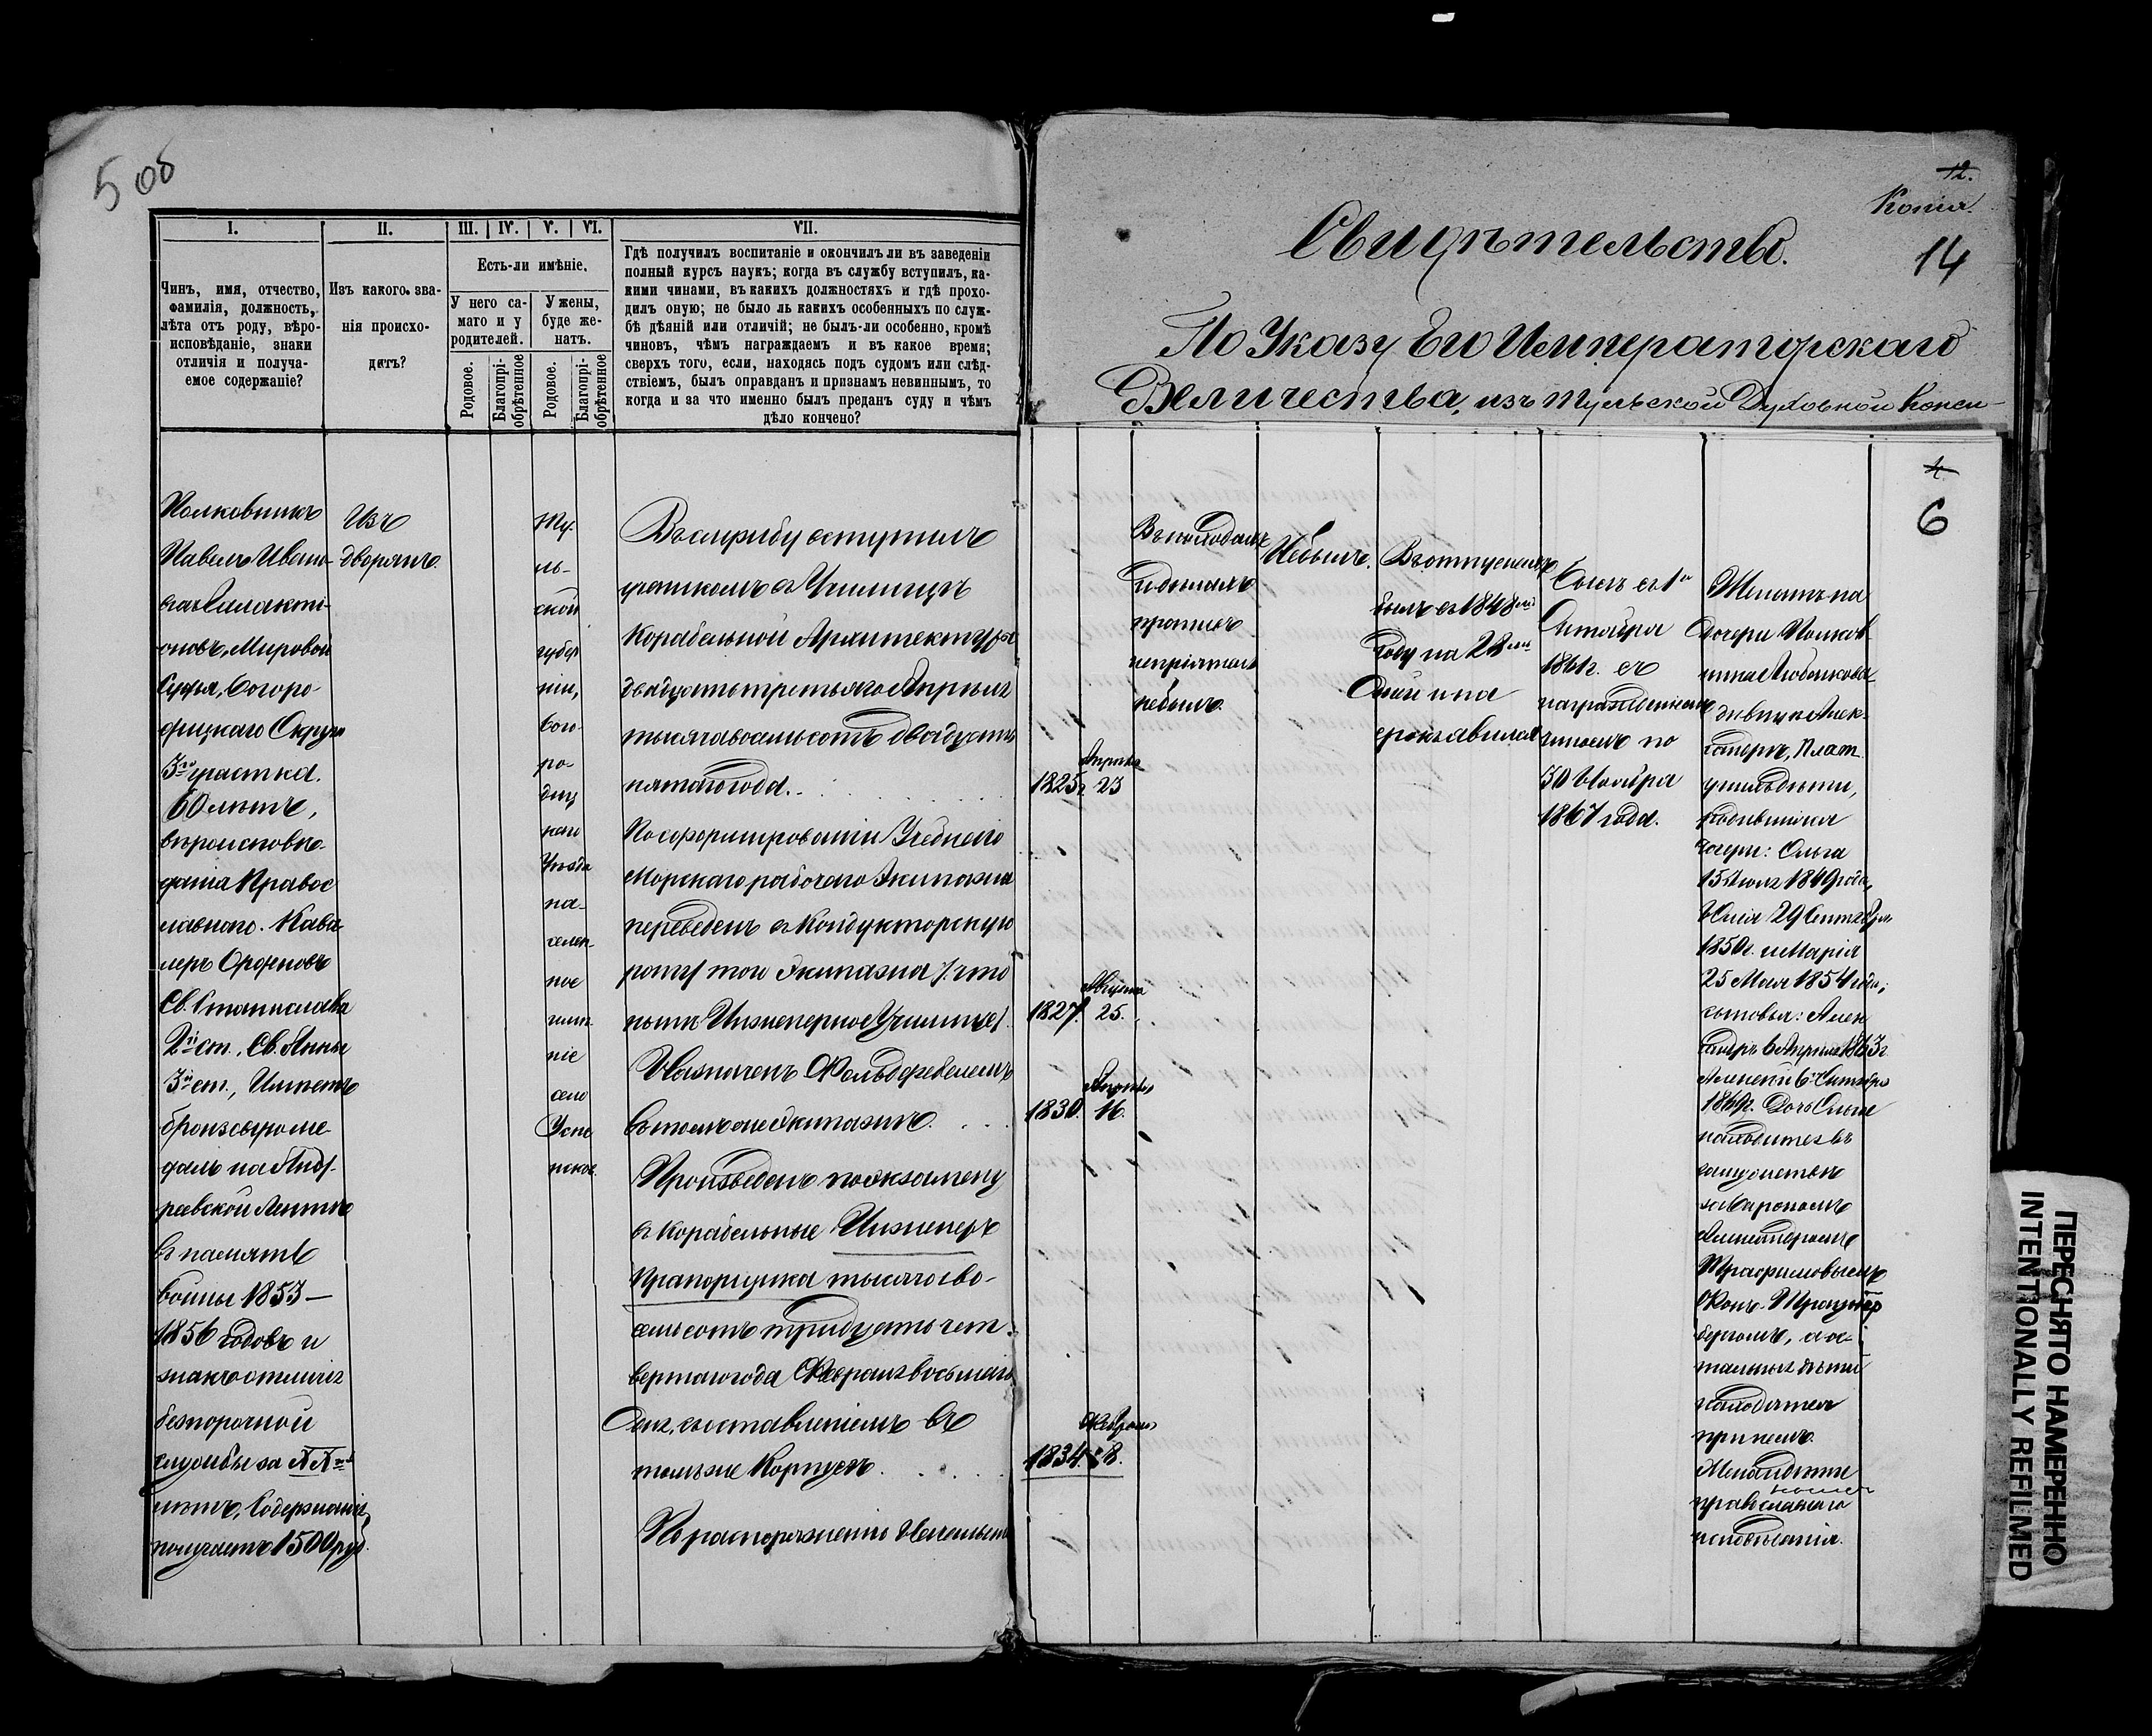 5 об
I.
II.
III.
IV.
V.
VI.
VII.
Чинъ, имя, отчество,
фамилія, должность,
лѣта отъ роду, вѣро-
исповѣданіе, знаки
отличія и получа-
емое содержаніе?
Изъ какого зва-
нія происхо-
дитъ?
Есть-ли имѣніе.
У него са-
маго и у
родителей.
У жены,
буде же-
натъ.
Родовое.
Благопрі-
обрѣтенное
Родовое.
Благопрі-
обрѣтенное
Гдѣ получилъ воспитаніе и окончилъ ли въ заведеніи
полный курсъ наукъ; когда въ службу вступилъ, ка-
кими чинами, въ какихъ должностяхъ и гдѣ прохо-
дилъ оную; не было ль какихъ особенныхъ по служ-
бѣ дѣяній или отличій; не былъ-ли особенно, кромѣ
чиновъ, чѣмъ награждаемъ и въ какое время;
сверхъ того, если, находясь подъ судомъ или слѣд-
ствіемъ, былъ оправданъ и признамъ невиннымъ, то
когда и за что именно былъ преданъ суду и чѣмъ
дѣло кончено?
Полковникъ
Павелъ Ивано-
вичъ
оновъ, Мировой
Судья, Богоро-
дицкаго Округа
3го участка.
60 лѣтъ,
вѣроисповѣ-
данія Правос
лавнаго. Кава-
леръ Орденовъ
Св. Станислава
2й ст., Св. Анны
3й ст., Имѣетъ
бронзовую ме-
даль на Анд-
реевской Лентѣ
въ память
войны 1853 —
1856 годовъ и
знакъ отличія
безпорочной
службы за XX
лѣтъ, Содержанія
получаетъ 1500 руб.
Изъ
дворянъ.
Ту-
ль-
ской
губер
ніи,
Бого-
ро-
диц
каго
Уѣзда
на-
селен-
ное
имѣ
ніе
село
Успе
нское.
Въ службу вступилъ
ученикомъ въ Училище
Корабельной Архитектуры
двадцать третьяго Апрѣля
тысяча восемьсотъ двадцать
пятаго года.
По сформированіи Учебнаго
Морскаго рабочаго Экипажа
переведенъ въ Кондукторскую
роту того Экипажа /: что
нынѣ Инженерное Училище/.
Назначенъ Фельдфебелемъ
въ томъ же Экипажѣ.
Произведенъ по экзамену
въ Корабельные Инженеръ
Прапорщика тысяча во-
семьсотъ тридцать чет-
вертаго года Февраля восьмаго
дня, съ оставленіемъ въ
томъ же Корпусѣ.
По распоряженію Начальст
12.
Копія.
14
Свидѣтельство.
По Указу Его Императорскаго
Величества, изъ Тульской Духовной Конси-
6
1825 Апрѣля 23
1827 Августа 25.
1830. 16.
1834. Февраля 8.
Въ походахъ
и дѣлахъ
противъ
непріятеля
не былъ.
Не былъ.
Въ отпускѣ
былъ въ 1848мъ
году на 28мь
дней и на
срокъ явился
Былъ съ 1го
Октября
1861г. съ
награжденіемъ
чиномъ по
30 Ноября
1867 года.
Женатъ на
дочери Полков-
ника
дѣвицѣ Алек-
сандрѣ,
у нихъ дѣти,
родившіяся
дочери: Ольга
15 Іюля 1849 года,
Юлія 29 Сентября
1850г. и Марія
25 Мая 1854 года;
сыновья: Алек
сандръ 6 Апрѣля 1863г.
Алексѣй 6 Октября
186 г. Дочь Ольга
находится въ
замужествѣ
за Барономъ
Фонъ-
бергомъ, а ос-
тальныя дѣти
находятся
при немъ.
Жена и дѣти
православнаго
исповѣданія.
ПЕРЕСНЯТО НАМЕРЕННО
INTENTIONALLY REFILMED